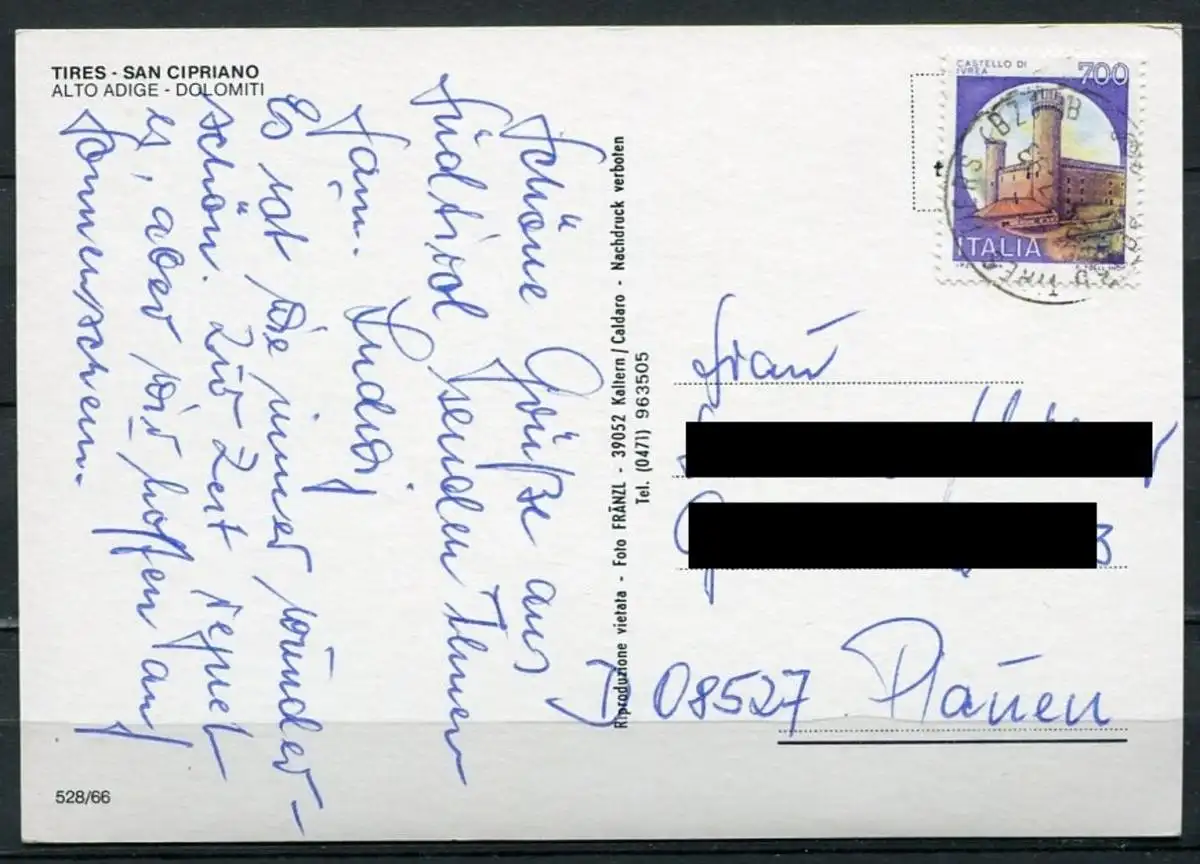 TIRES - SAN CIPRIANO
ALTO ADIGE - DOLOMITI
Schöne Grüße aus
Südtirol senden Ihnen
Fam. Ludwig
Es ist wie immer wunder-
schön. Zur Zeit regnet
es, aber wir hoffen auf
Sonnenschein.
528/66
Riproduzione vietata - Foto FRÄNZL - 39052 Kaltern/Caldaro - Nachdruck verboten
Tel. (0471) 963505
CASTELLO DI
IVREA
700
ITALIA
Frau
D 08527 Plauen